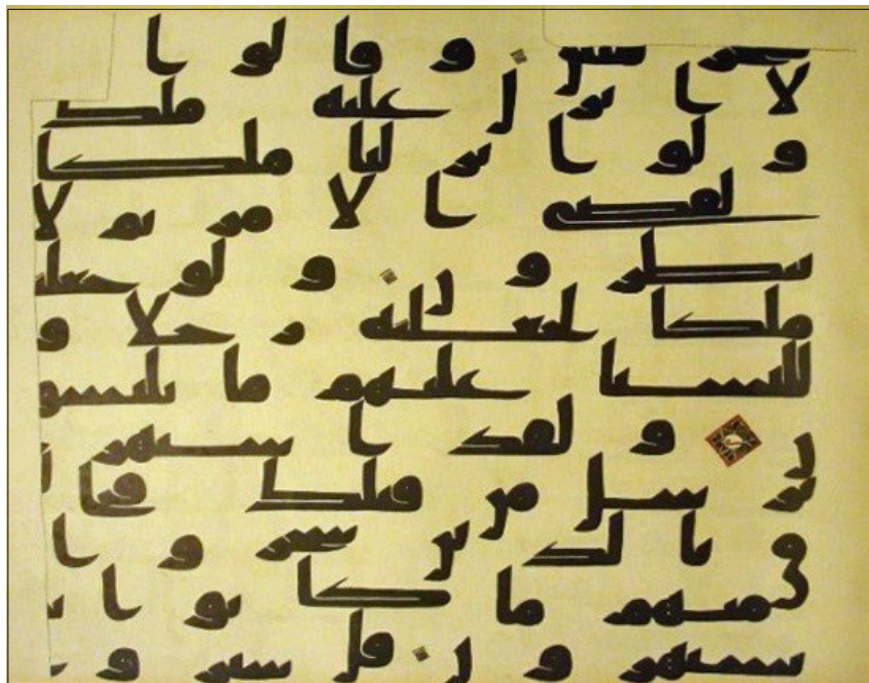 مبين وقالوا
لا انزل عليه ملك
ولو انزلنا ملكا
لقضي الامر ثم لا
ينظرون ولو جعلنه
ملكا لجعلنه رجلا و
للبسنا عليهم ما يلبسو
ن ولقد استهز
برسل من قبلك فحا
ق بالذين سخروا
منهم ما كانوا
يستهزون قل سيرو